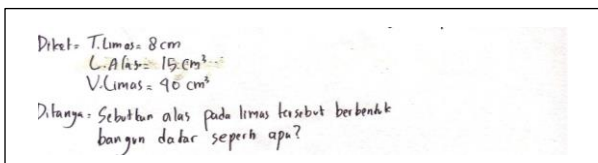 Diket = T.Limas = 8 cm
L.Alas = 15 cm³
V.Limas = 40 cm³
Ditanya = Sebutkan alas pada limas tersebut berbentuk
bangun datar seperti apa?